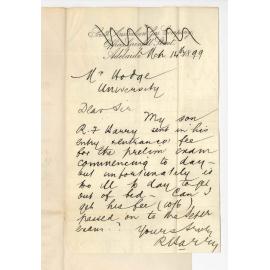 Adelaide Mch 14th 1899
Mr Hodge
University
Dear Sir
My son
R. F. Harry sent in his
entry entrance fee
for the prelim exam
commencing to day –
but unfortunately is
too ill to day to get
out of bed – Can I
get his fee (10/6)
passed on to the Septr
Exam?
Yours truly
R Harry